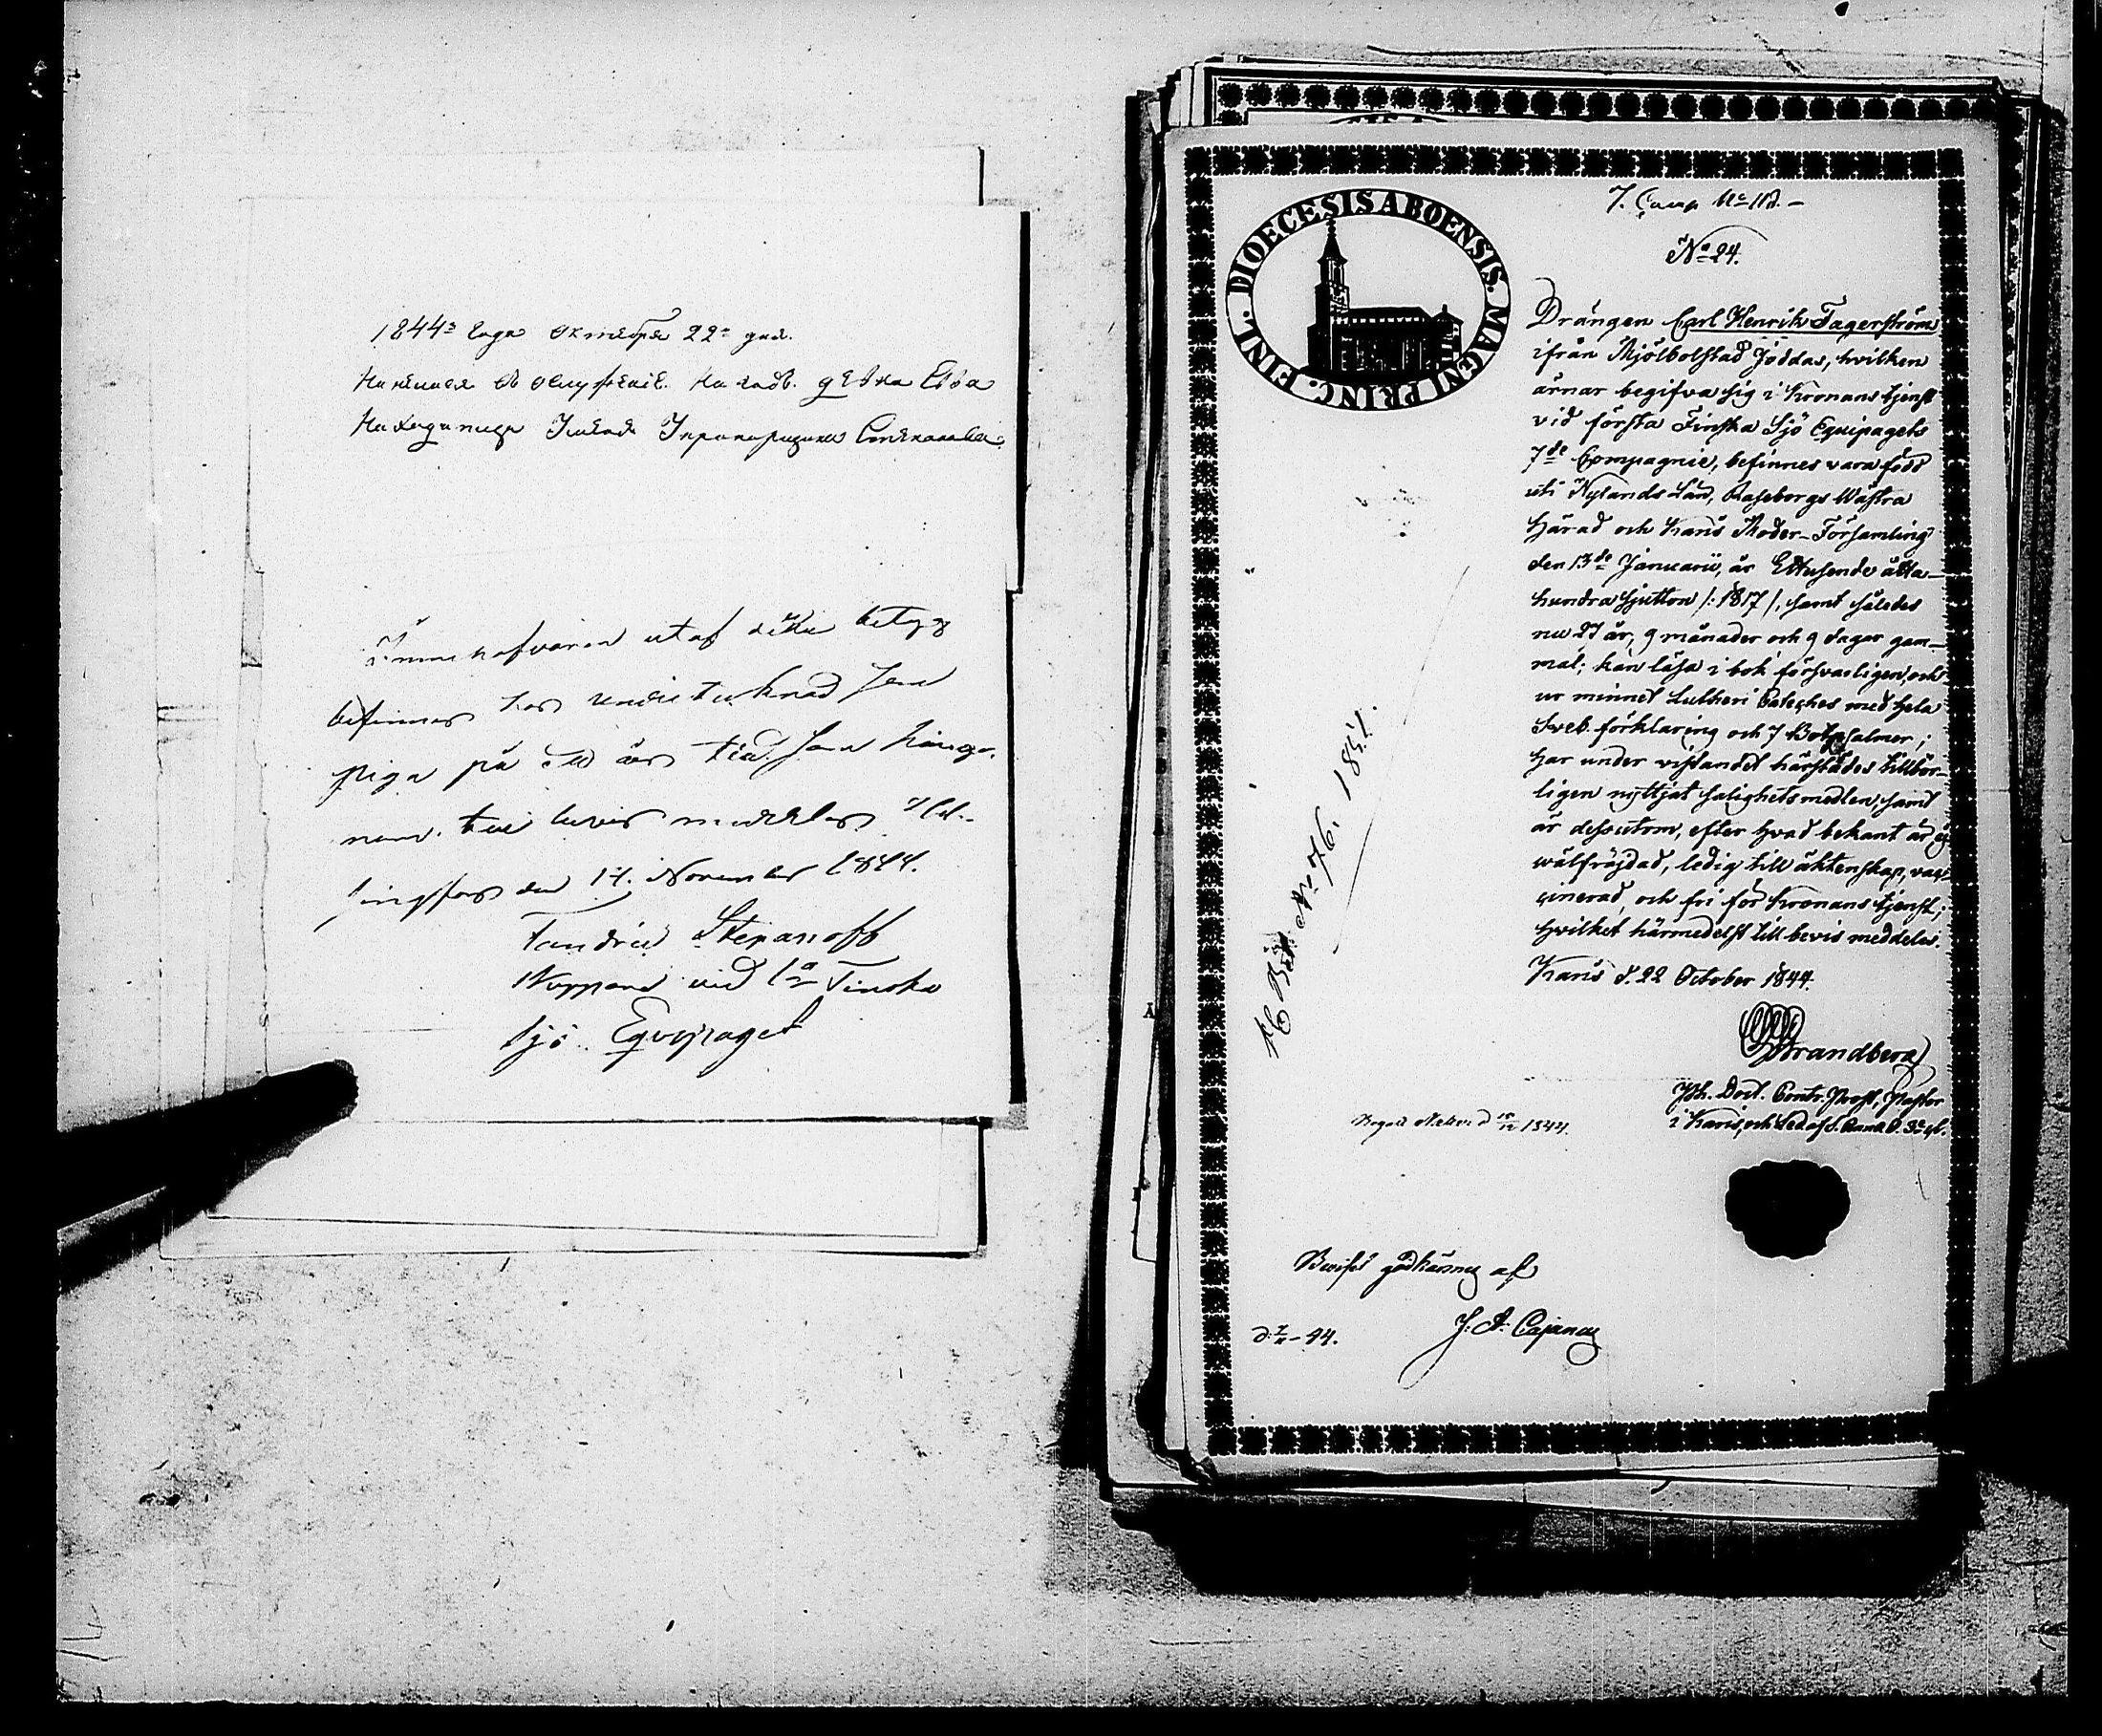 1844го года Октября 22го дня.
на годъ. дѣвка Ева
находится
Innehafvaren utaf detta betyg
befinnes hos undertecknad som
piga på ett års tid, som härige-
nom till bevis meddelas. Hel-
singfors den 14. November 1844.
Stepanoff
vid 1a Finska
Sjö Equipaget
7. Comp No 118. –
No 24.
DIOECESIS ABOENSIS. MAGNI PRINC. FINL.
Drängen Carl Henrik Fagerström
ifrån Mjölbolstad Joddas, hvilken
ärnar begifva sig i Kronans tjenst
vid första Finska Sjö Equipagets
7de Compagnie, befinnes vara född
uti Nylands Län, Raseborgs Wästra
Härad och Karis Moder-Församling
den 13de Januarii, år Ettusende åtta-
hundra sjutton /: 1817 /, samt således
nu 27 år, 9 månader och 9 dagar gam-
mal; kan läsa i bok försvarligen, och
ur minnet Lutheri Cateches med hela
Sveb. förklaring och 7 Botpsalmer;
har under vistandet härstädes tillbör-
ligen nyttjat salighetsmedlen, samt
är dessutom, efter hvad bekant är, ej
wälfräjdad, ledig till äktenskap, vac-
cinerad, och fri för Kronans tjenst;
hvilket härmedelst till bevis meddelas.
Karis d. 22 October 1844.
Strandberg
Th. Doct. Contr. Prost, Pastor
i Karis, och Led. af S. Annæ O. 3e cl.
No 76. 1851.
1844.
godkännes af
J. A. Cajanus
44.